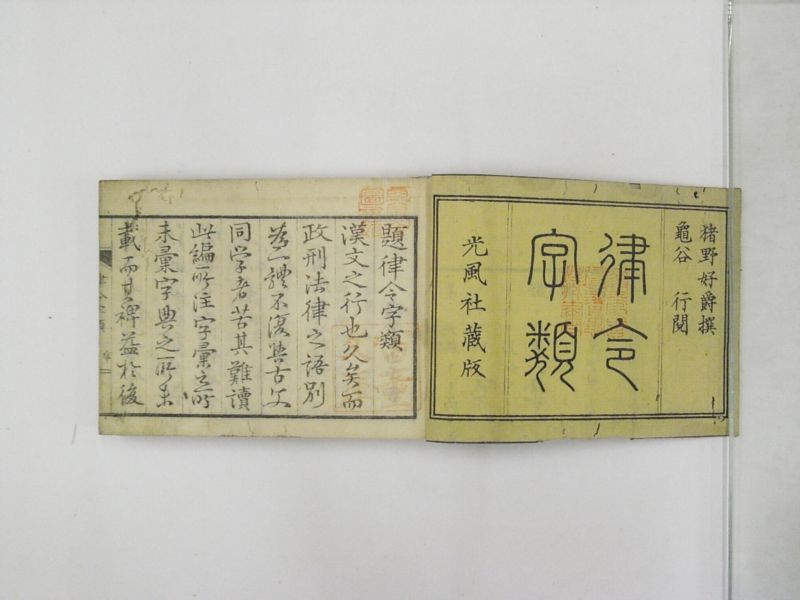 猪野好爵撰
龜谷　行閲
律令
字類
光風社藏版
題律令字類
漢文之行也久矣而
政刑法律之語別
為一體不復與古文
同学者苦其難讀
此編所注字彙之所
未彙字典之所未
載而其裨益於後